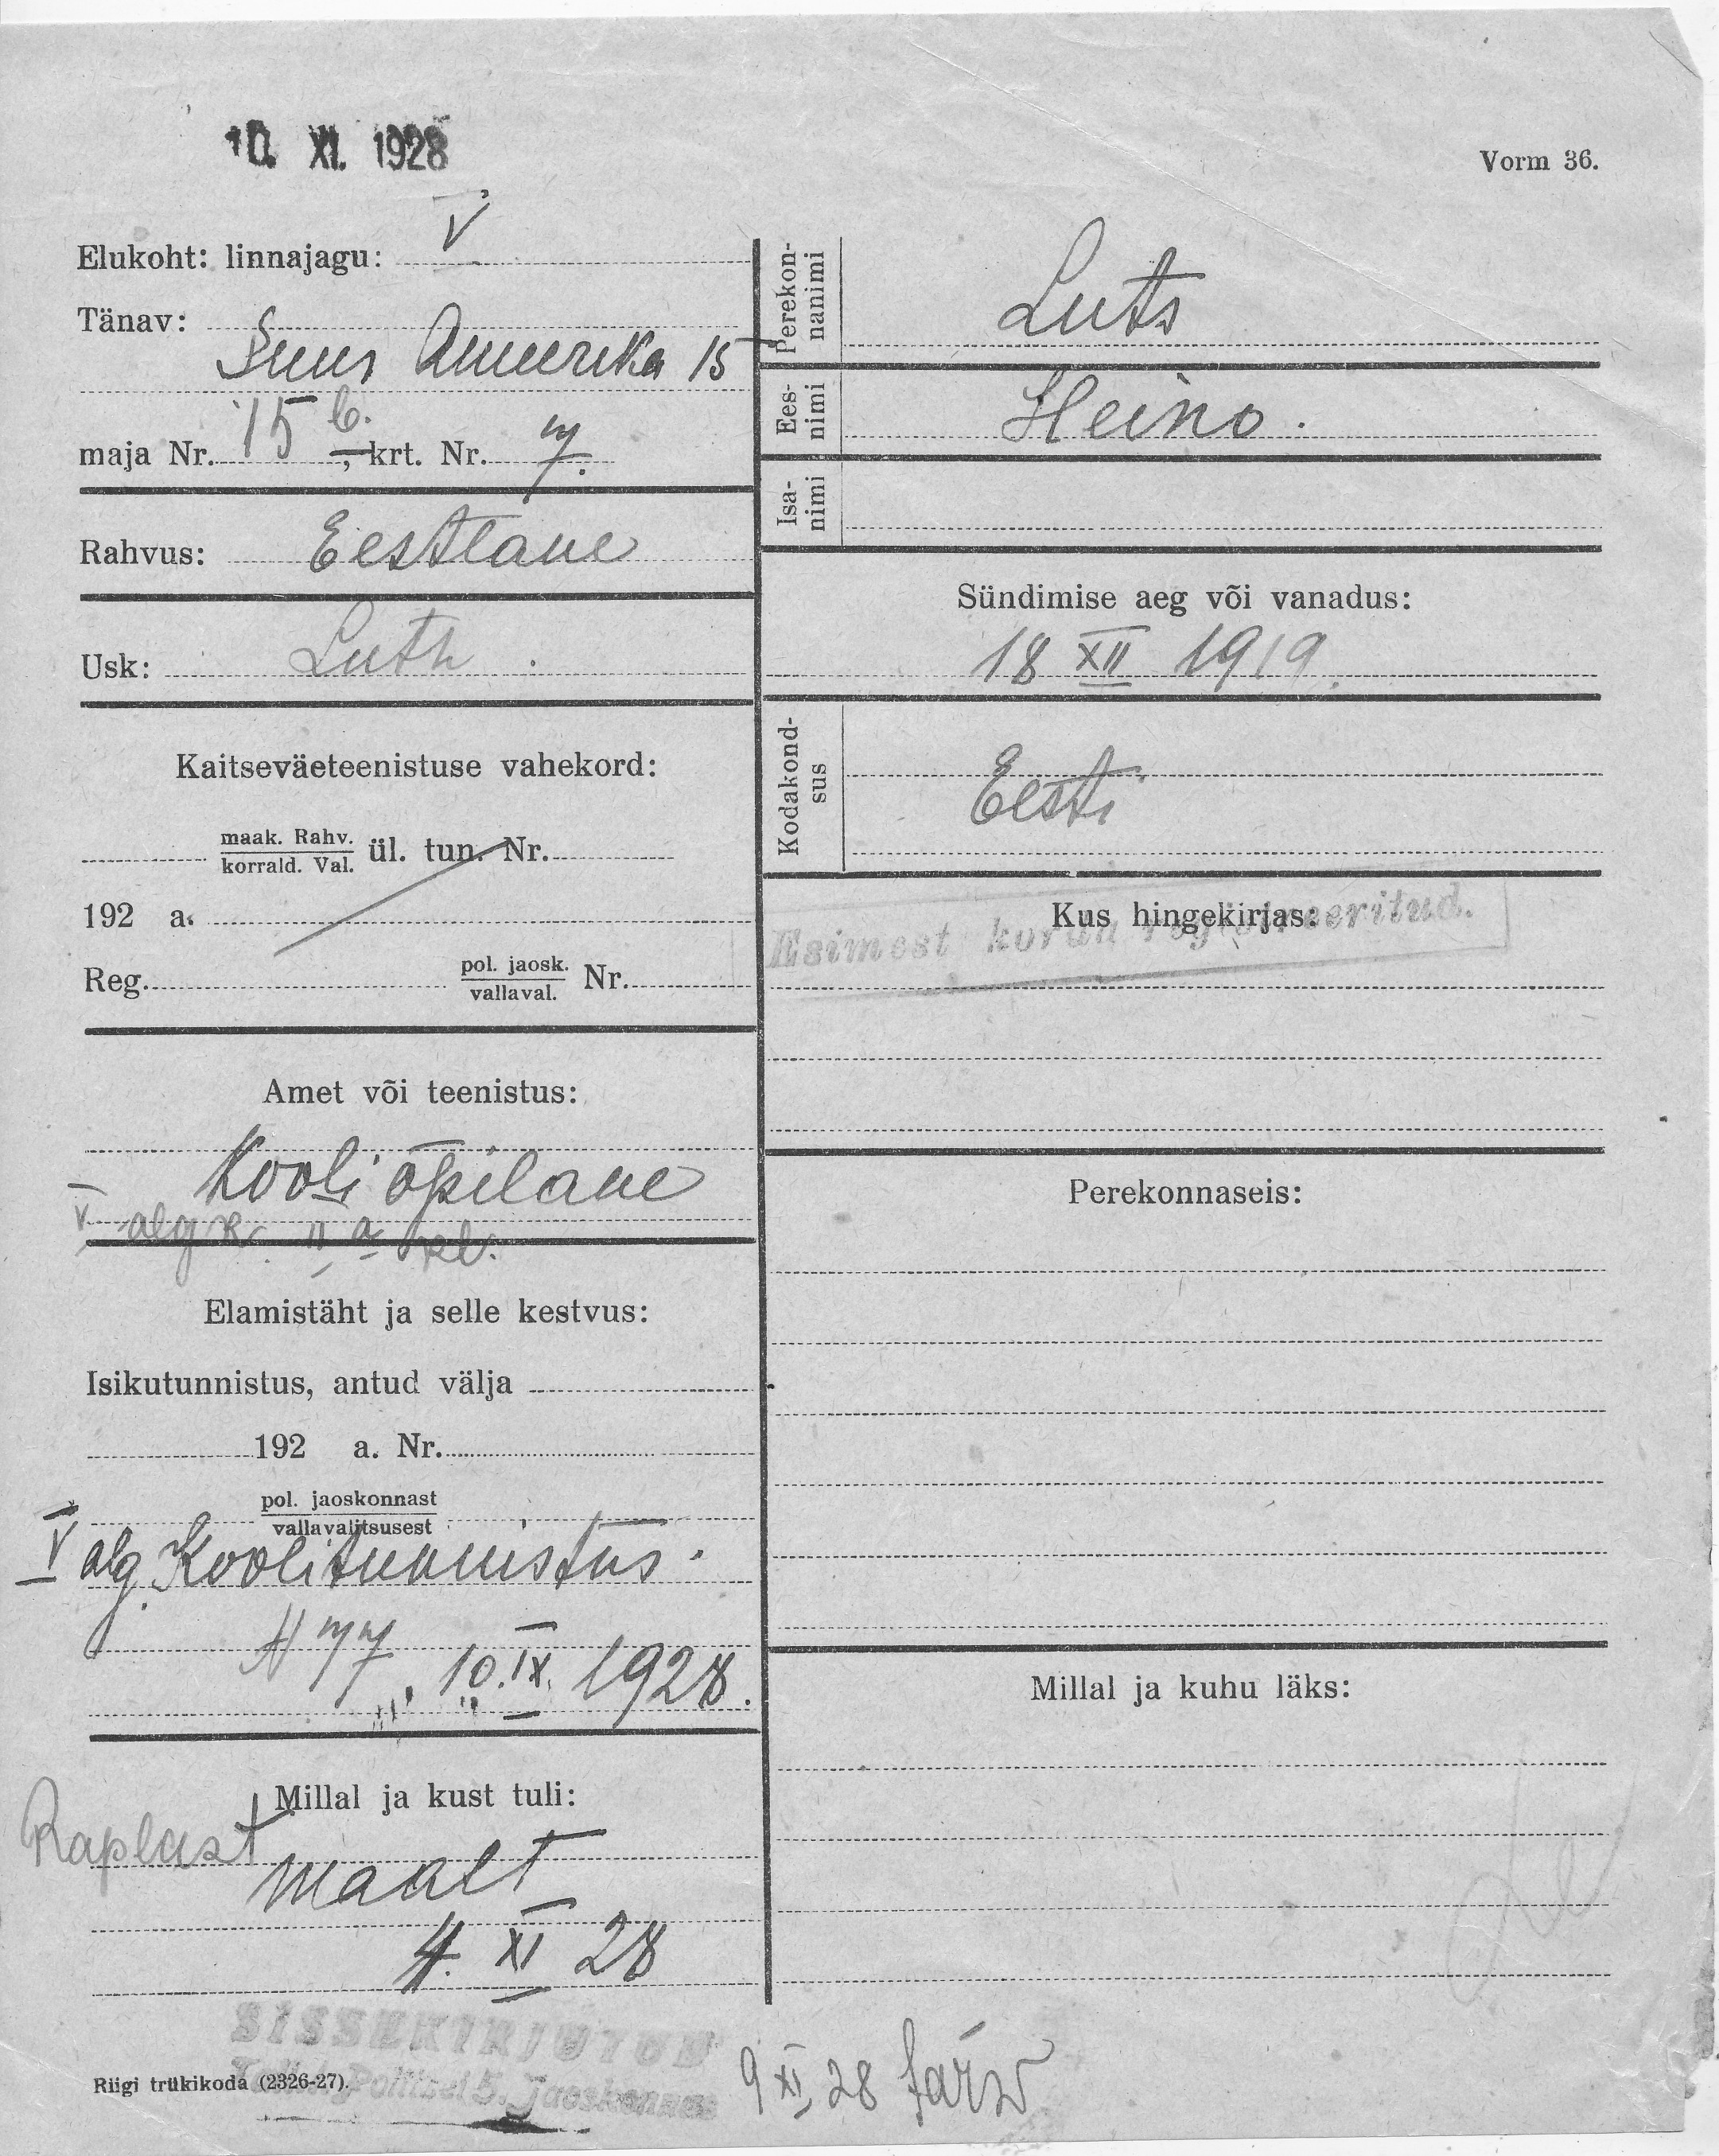 10. XI. 1928
Vorm 36.
Elukoht: linnajagu: V
Tänav:
Suur Ameerika 15
maja Nr. 15 b. , krt. Nr. 7.
Rahvus: Eestlane
Usk: Luth.
Kaitseväeteenistuse vahekord:
maak. Rahv.
korrald. Val. ül. tun. Nr.
192 a.
Reg. pol. jaosk.
vallaval. Nr.
Amet või teenistus:
Kooli õpilane
V alg k. II a kl.
Elamistäht ja selle kestvus:
Isikutunnistus, antud välja
192 a. Nr.
pol. jaoskonnast
vallavalitsusest
V alg. Koolitunnistus.
N 77
10. IX. 1928.
Millal ja kust tuli:
Raplast
maalt
4. XI 28
SISSEKIRJUTUD
Politsei 5. jaoskonnas
Riigi trükikoda (2326-27).
Perekon-
nanimi
Luts
Ees-
nimi
Heino.
Isa-
nimi
Sündimise aeg või vanadus:
18 XII 1919.
Kodakond-
sus
Eesti
Kus hingekirjas:
Esimest korda registreeritud.
Perekonnaseis:
Millal ja kuhu läks:
9 XI 28